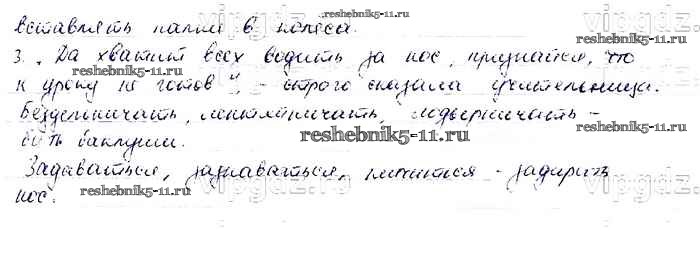 вставлять палки в колеса.
3. „Да хватит всех водить за нос, признайся, что
к уроку не готов“, - строго сказала учительница.
Бездельничать, лентяйничать, лодырничать -
бить баклуши.
Задаваться, зазнаваться, - задирать
нос.
reshebnik5-11.ru
reshebnik5-11.ru
reshebnik5-11.ru
reshebnik5-11.ru
reshebnik5-11.ru
vipgdz
vipgdz